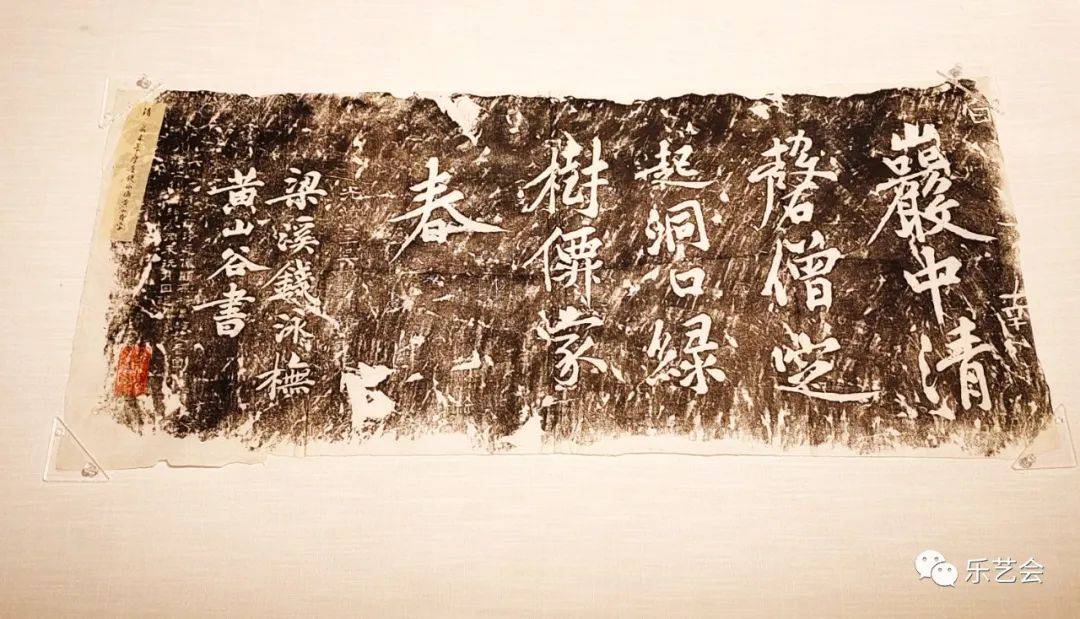 巖中清
磬僧定
起洞口緑
樹僊家
春
梁溪錢泳橅
黃山谷書
乐艺会